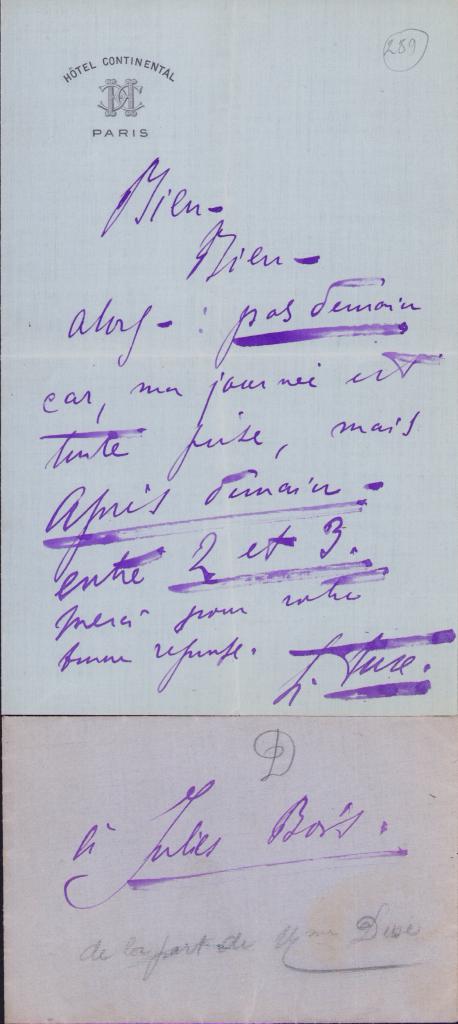 289
HÔTEL CONTINENTAL
PARIS
Bien -
Bien -
alors - : pas demain
car, ma journée est
toute prise, mais
Après demain -
entre 2 et 3.
merci pour votre
bonne réponse.
D
à Jules Bois.
de la part de Mme Duse